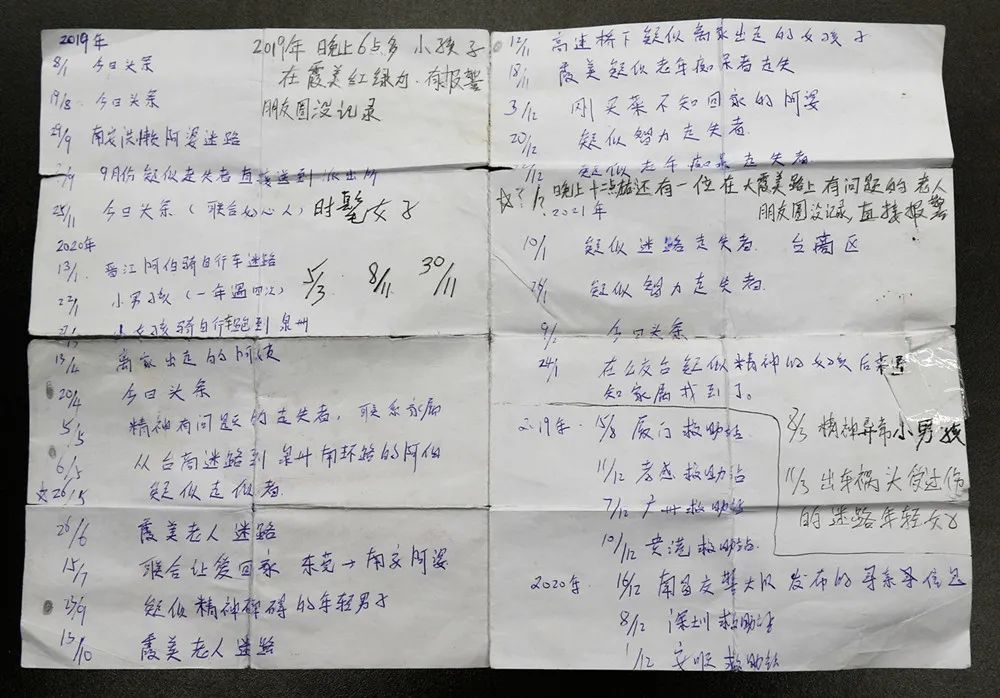 2019年
8/1 今日头条
19/8 今日头条
29/9 南安洪濑阿婆迷路
/9 9月份疑似走失者直接送到派出所
25/11 今日头条(联合 心人)时髦女子
2020年
13/1 晋江阿伯骑自行车迷路
22/1 小男孩(一年遇四次)
小女孩骑自行车跑到泉州
5/3 8/11 30/11
2019年 晚上6点多 小孩子
在霞美红绿灯.有报警
朋友圈没记录
13/4 离家出走的阿
20/4 今日头条
5/5 精神有问题的走失者,联系家属
6/5 从台商迷路到泉州南环路的阿伯
26/5 疑似走似者.
26/6 霞美老人迷路
15/7 联合让爱回家 东莞→南安阿婆
23/9 疑似精神碑碍的年轻男子
13/10 霞美老人迷路
12/11 高速桥下疑似离家出走的女孩子
18/11 霞美疑似老年痴呆者走失
3/12 刚买菜不知回家的阿婆
20/12 疑似智力走失者.
/12 疑似老年痴呆走失者
晚上十二点 还有一位在大霞美路上有问题的老人
朋友圈没记录,直接报警
2021年
19/1 疑似迷路走失者. 台商区
26/1 疑似智力走失者.
9/2 今日头条
24/1 在公交台疑似精神的女孩后来通
知家属找到了。
2019年. 15/8 厦门救助站
11/12 孝感救助站
7/12 广州救助站
10/12 黄港救助站.
2020年. 16/12 南昌交警大队发布的寻亲寻信息
8/12 深圳救助站
1/12 安顺救助站
2/3 精神异常小男孩
11/3 出车祸头受过伤
的迷路年轻女子